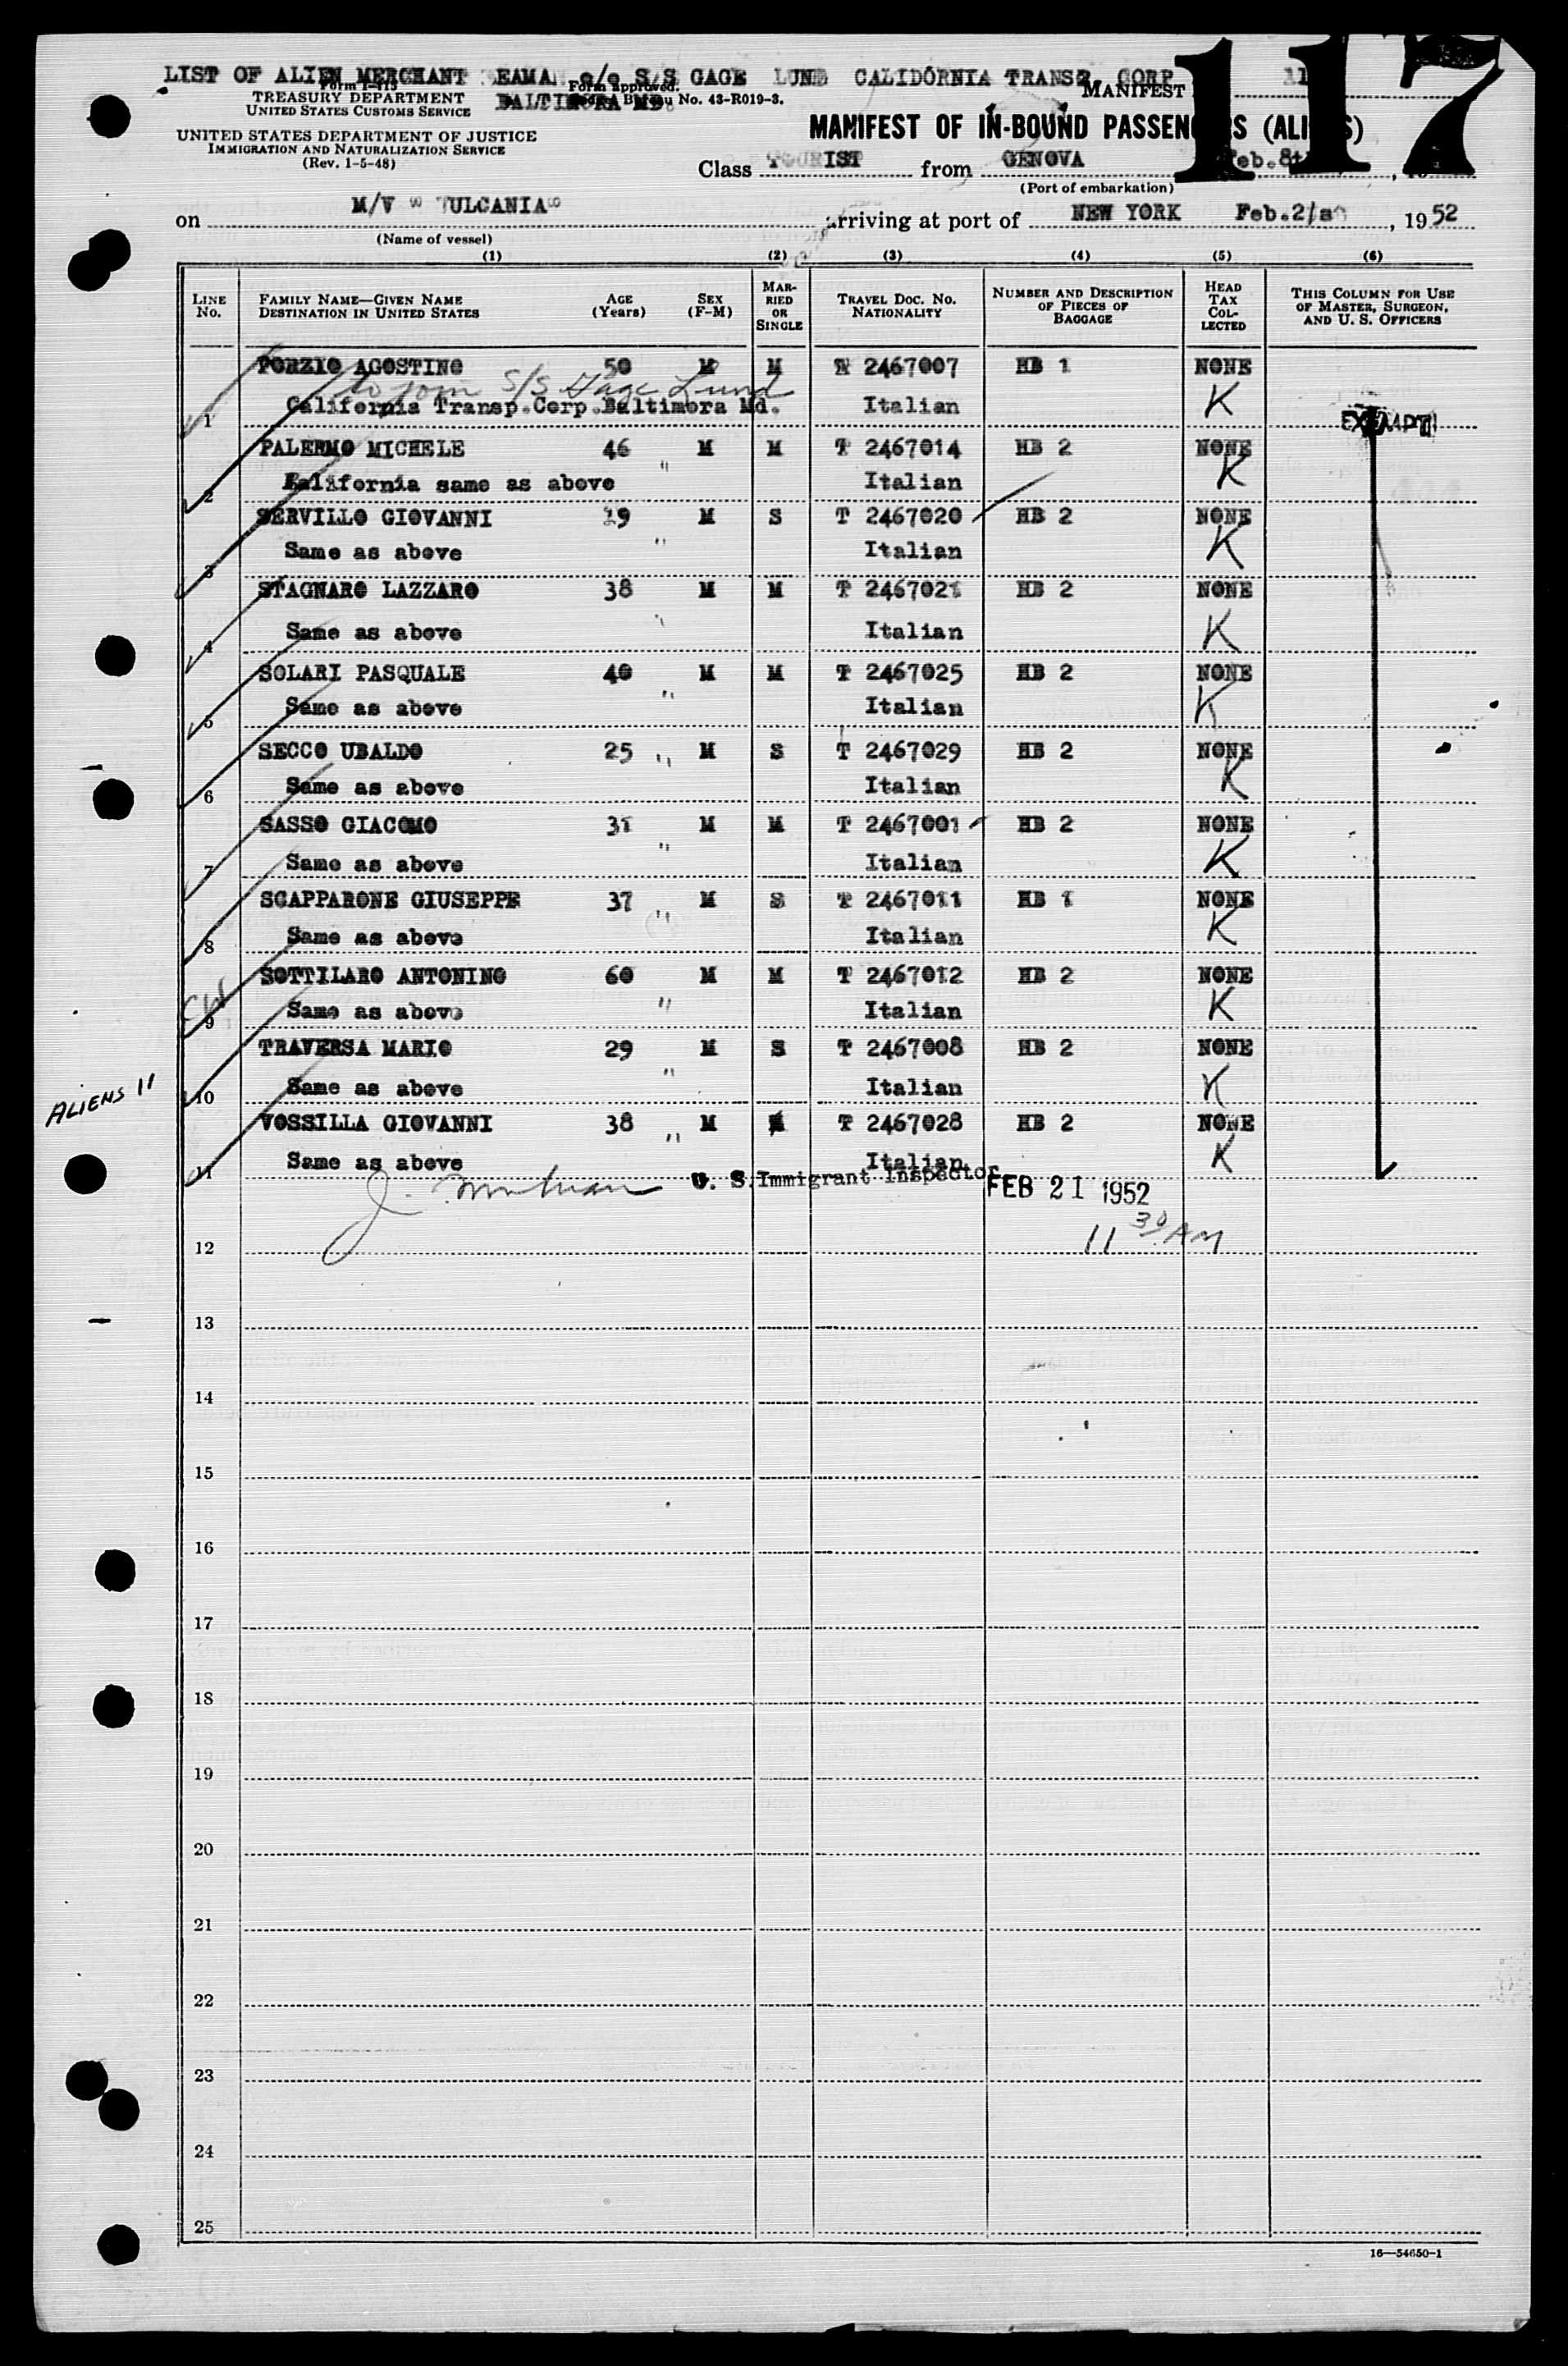 LIST OF ALIEN MERCHANT EAMA c/o S/S GAGE LUND CALIDORNIA TRANSP. CORP
BALTIMORA MD.
Form I-415
TREASURY DEPARTMENT
UNITED STATES CUSTOMS SERVICE
UNITED STATES DEPARTMENT OF JUSTICE
IMMIGRATION AND NATURALIZATION SERVICE
(Rev. 1-5-48)
Form approved.
Budget Bureau No. 43-R019-3.
MANIFEST
117
MANIFEST OF IN-BOUND PASSENGERS (ALIENS)
Class TOURIST from GENOVA Feb.8th
(Port of embarkation)
on M/V "VULCANIA" arriving at port of NEW YORK Feb.21st, 1952
(Name of vessel)
(1) (2) (3) (4) (5) (6)
LINE No. FAMILY NAME—GIVEN NAME DESTINATION IN UNITED STATES AGE (Years) SEX (F-M) MARRIED OR SINGLE TRAVEL DOC. No. NATIONALITY NUMBER AND DESCRIPTION OF PIECES OF BAGGAGE HEAD TAX COLLECTED THIS COLUMN FOR USE OF MASTER, SURGEON, AND U. S. OFFICERS
PORZIO AGOSTINO 50 M M T 2467007 HB 1 NONE
to join S/S Gage Lund
1 California Transp.Corp.Baltimora Md. Italian K EXEMPT
PALERMO MICHELE 46 M M T 2467014 HB 2 NONE
2 California same as above " Italian K
SERVILLO GIOVANNI 19 M S T 2467020 HB 2 NONE
3 Same as above " Italian K
STAGNARO LAZZARO 38 M M T 2467021 HB 2 NONE
4 Same as above " Italian K
SOLARI PASQUALE 40 M M T 2467025 HB 2 NONE
5 Same as above " Italian K
SECCO UBALDO 25 " M S T 2467029 HB 2 NONE
6 Same as above Italian K
SASSO GIACOMO 31 M M T 2467001 HB 2 NONE
7 Same as above " Italian K
SCAPPARONE GIUSEPPE 37 M S T 2467011 HB 1 NONE
8 Same as above " Italian K
SOTTILARO ANTONINO 60 M M T 2467012 HB 2 NONE
9 Same as above " Italian K
TRAVERSA MARIO 29 M S T 2467008 HB 2 NONE
10 Same as above " Italian K
ALIENS 11
VOSSILLA GIOVANNI 38 " M T 2467028 HB 2 NONE
11 Same as above Italian K
U. S. Immigrant Inspector FEB 21 1952
11 30 AM
12
13
14
15
16
17
18
19
20
21
22
23
24
25
16—54650-1